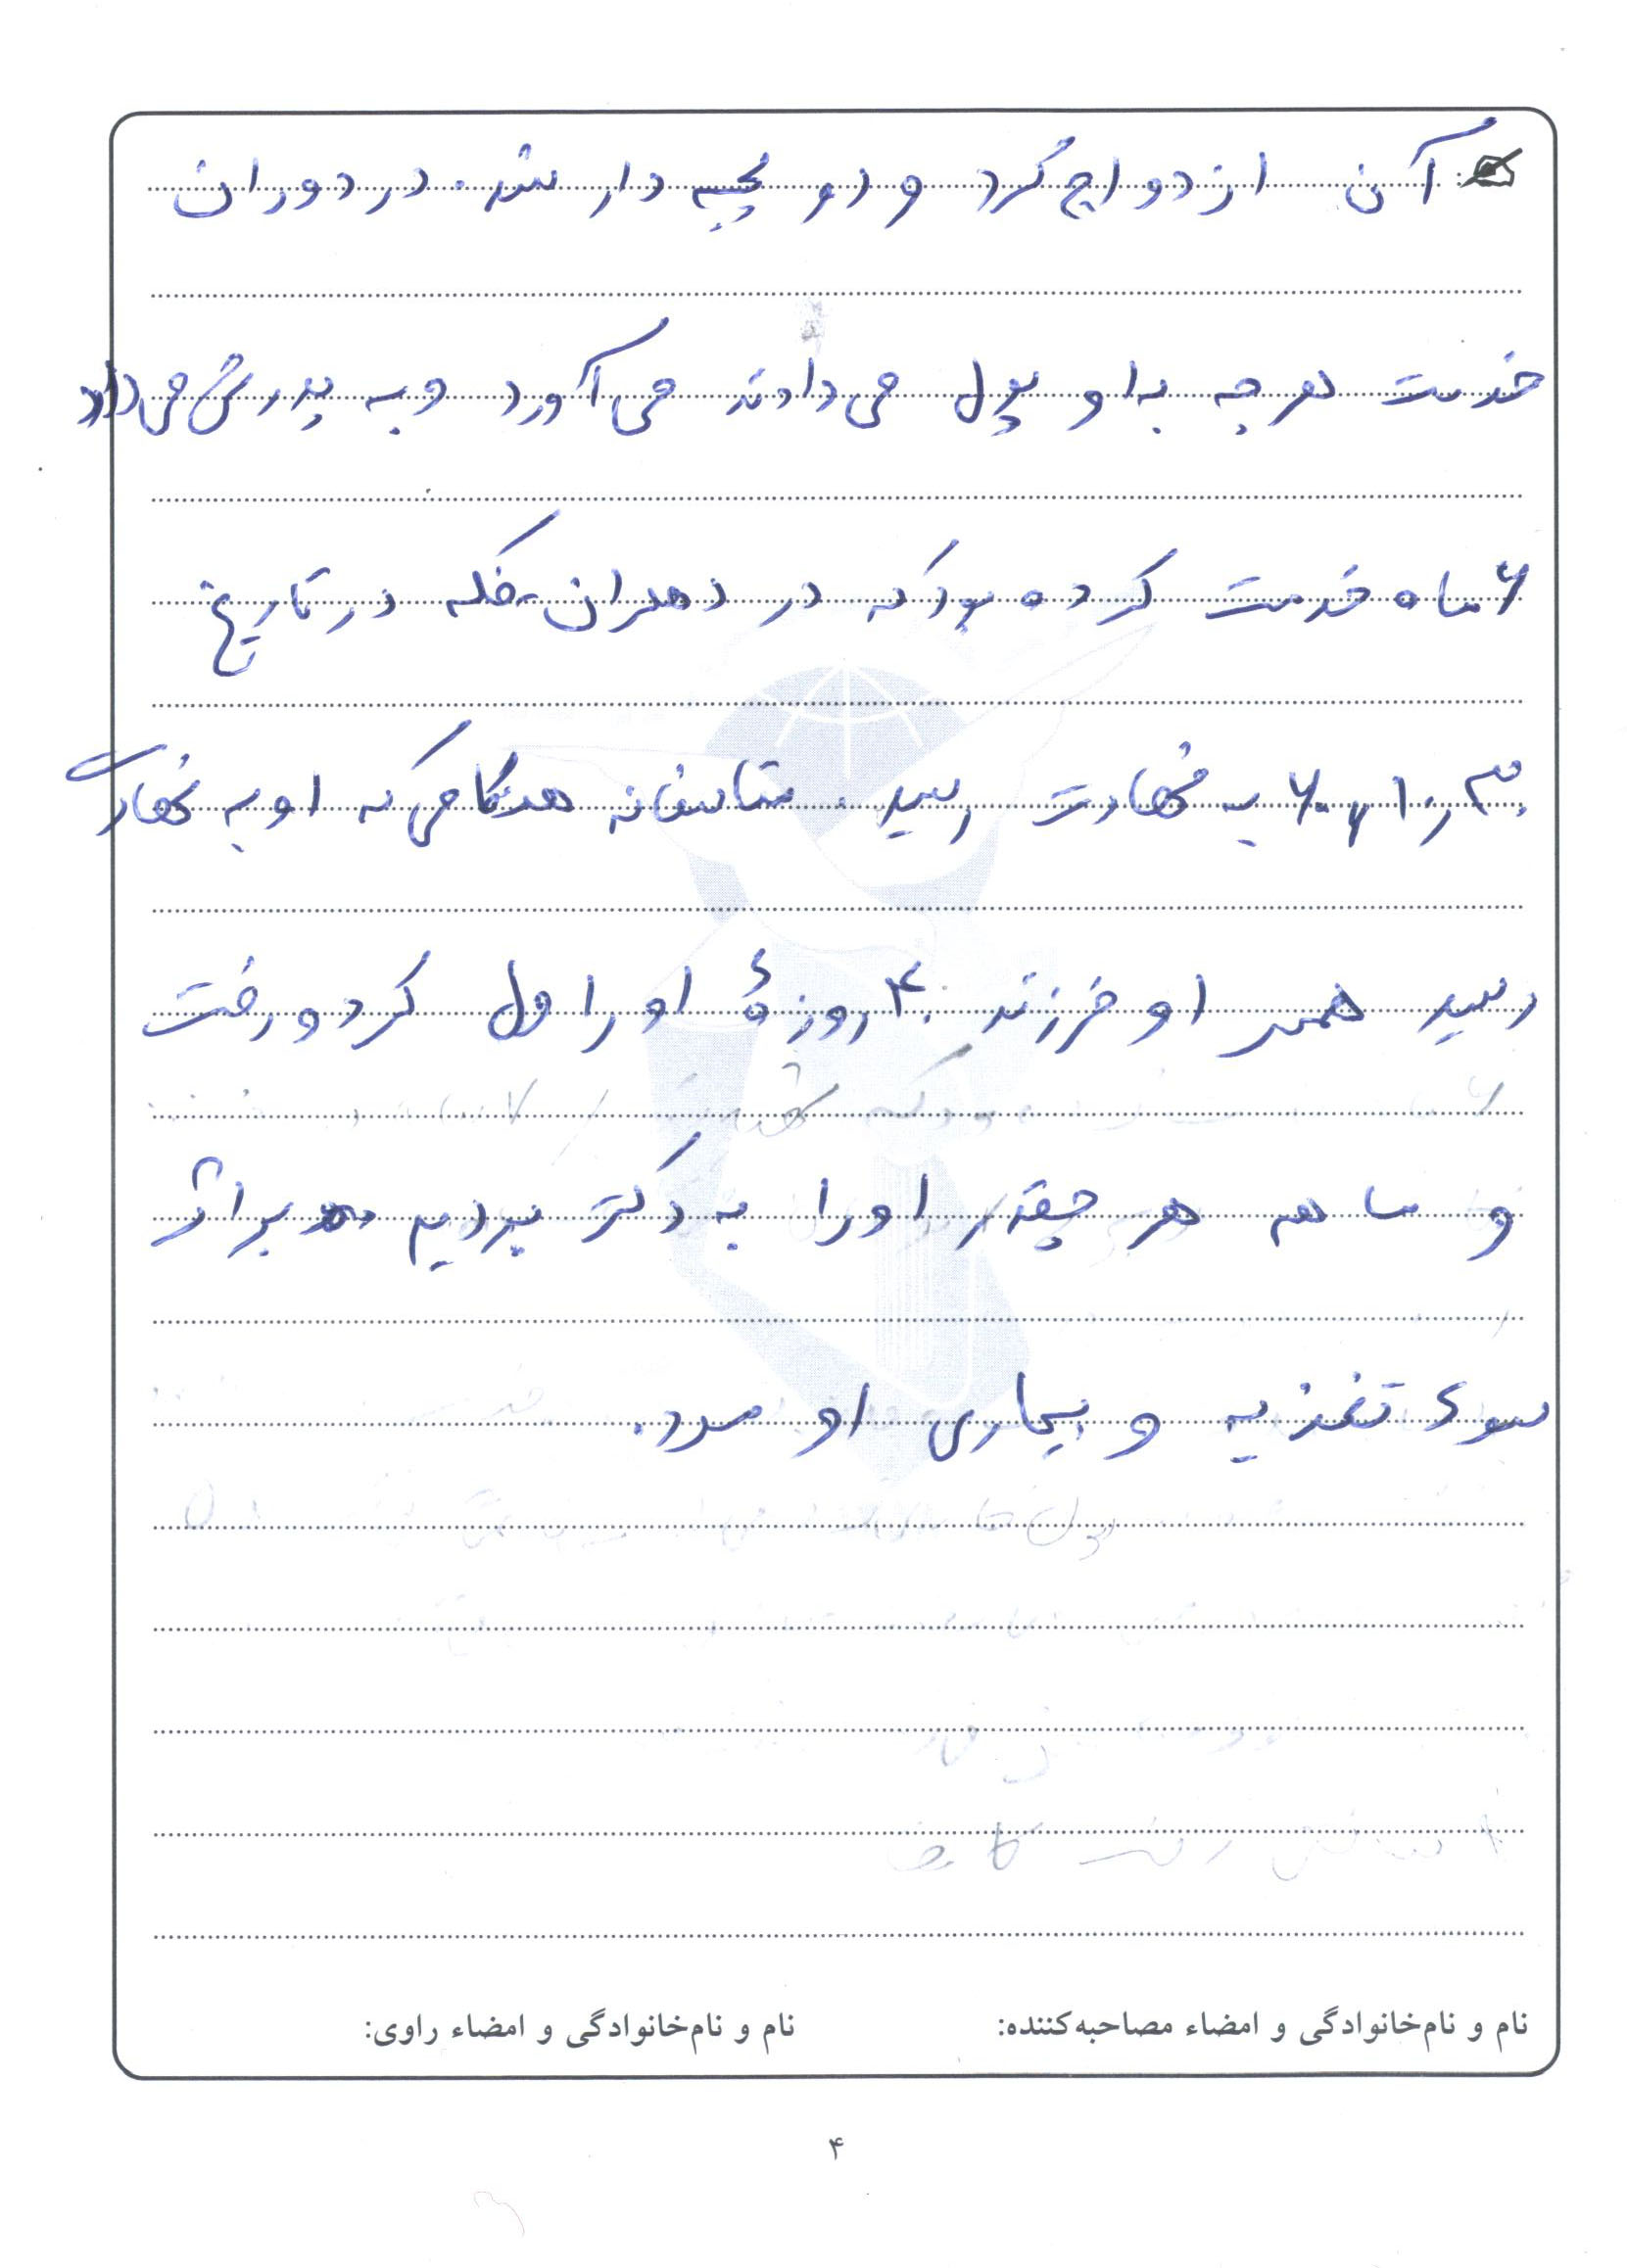 آن ازدواج کرد و دو بچه دار شد. در دوران
خدمت هرچه به او پول می دادند می آورد و به پدرش می داد
۶ ماه خدمت کرده بود که در دهلران - فکه در تاریخ
۶۰،۱،۳۰ به شهادت رسید. متاسفانه هنگامی که او به شهادت
رسید همسر او فرزند ۴۰ روزهٔ او را ول کرد و رفت
و ما هم هر چقدر او را به دکتر بردیم بر اثر
سوء تغذیه و بیماری او مرد.
نام و نام‌خانوادگی و امضاء مصاحبه‌کننده: نام و نام‌خانوادگی و امضاء راوی:
۴